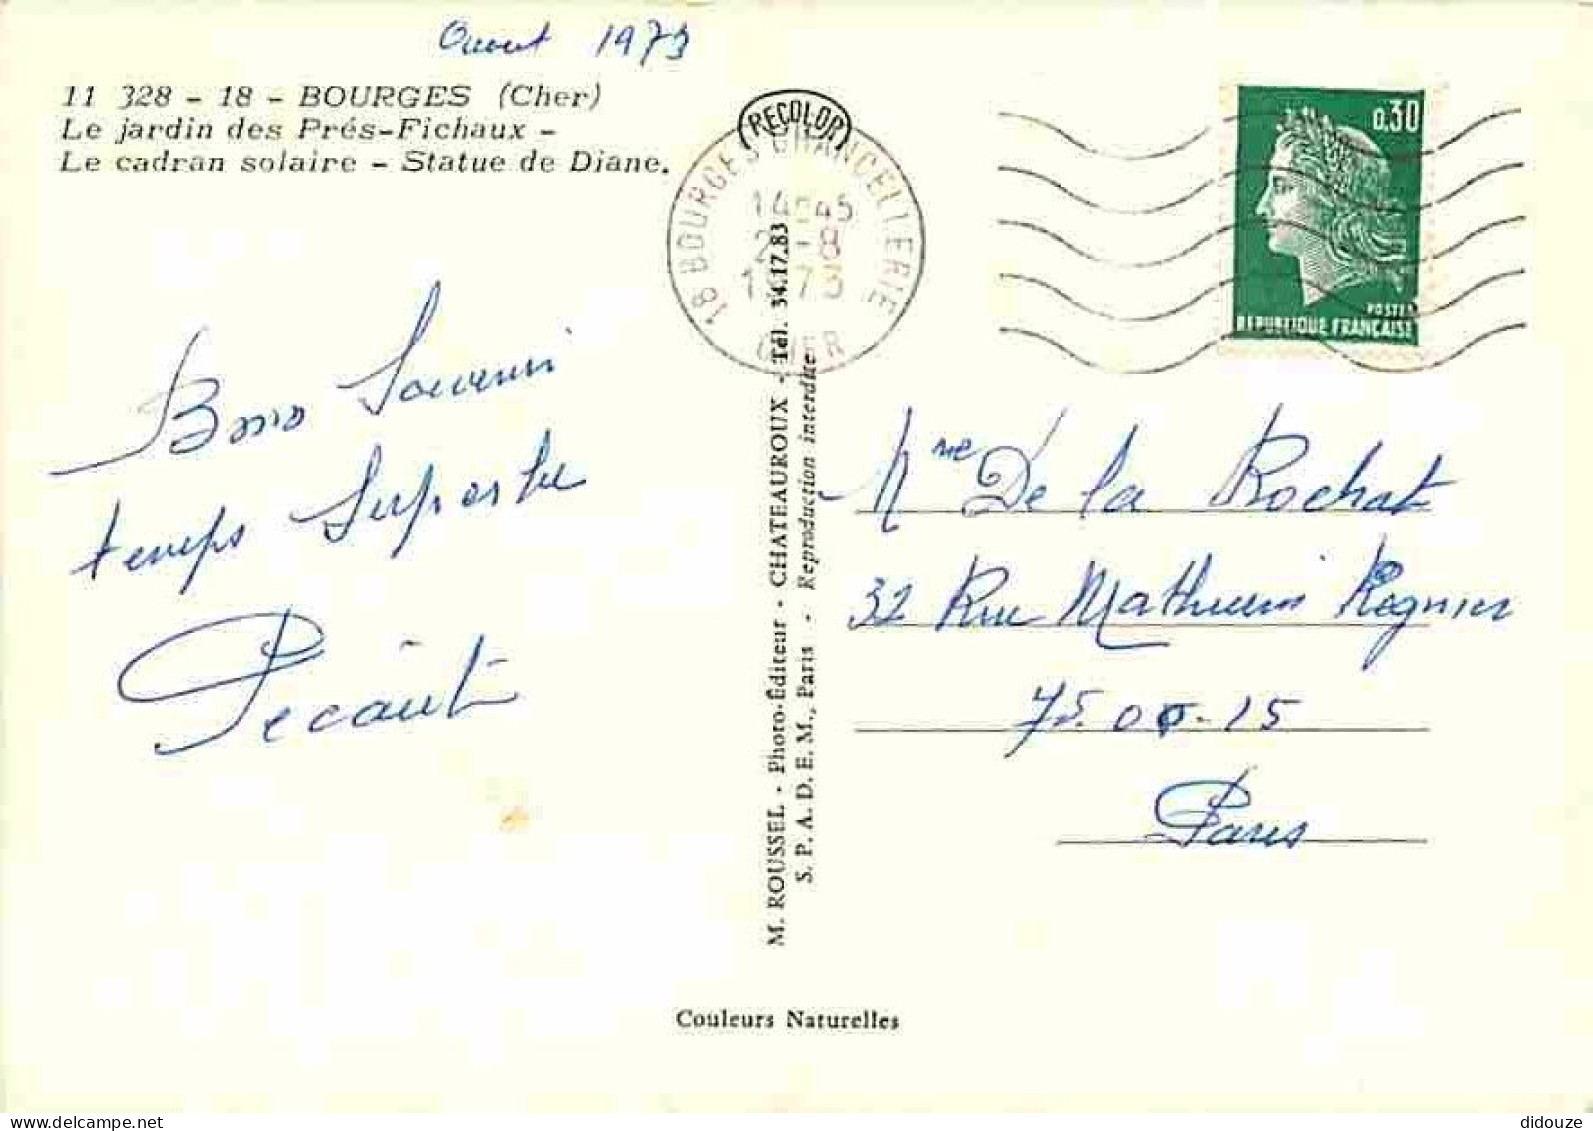 Aout 1973
11 328 - 18 - BOURGES (Cher)
Le jardin des Prés-Fichaux -
Le cadran solaire - Statue de Diane.
RECOLOR
18 BOURGES CHANCELLERIE
14H45
2-8
1973
CHER
0,30
POSTES
REPUBLIQUE FRANÇAISE
Bons Souvenir
temps Superbe
Pecaut
M. ROUSSEL - Photo-Éditeur - CHATEAUROUX - Tél. 34.17.83
S. P. A. D. E. M., Paris - Reproduction interdite
Mme De la Rochat
32 Rue Mathurin Regnier
75.00.15
Paris
Couleurs Naturelles
delcampe.net
didouze